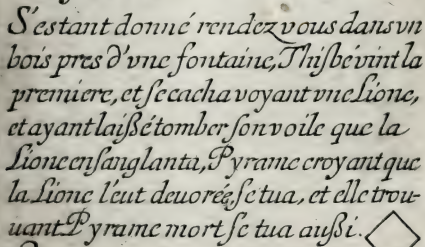 S'estant donné rendez vous dans vn
bois pres d'vne fontaine, Thisbé vint la
premiere, et se cacha voyant vne Lione,
et ayant laißé tomber son voile que la
Lione ensanglanta, Pyrame croyant que
la Lione l'eut deuorée, se tua, et elle trou-
uant Pyrame mort se tua außi.